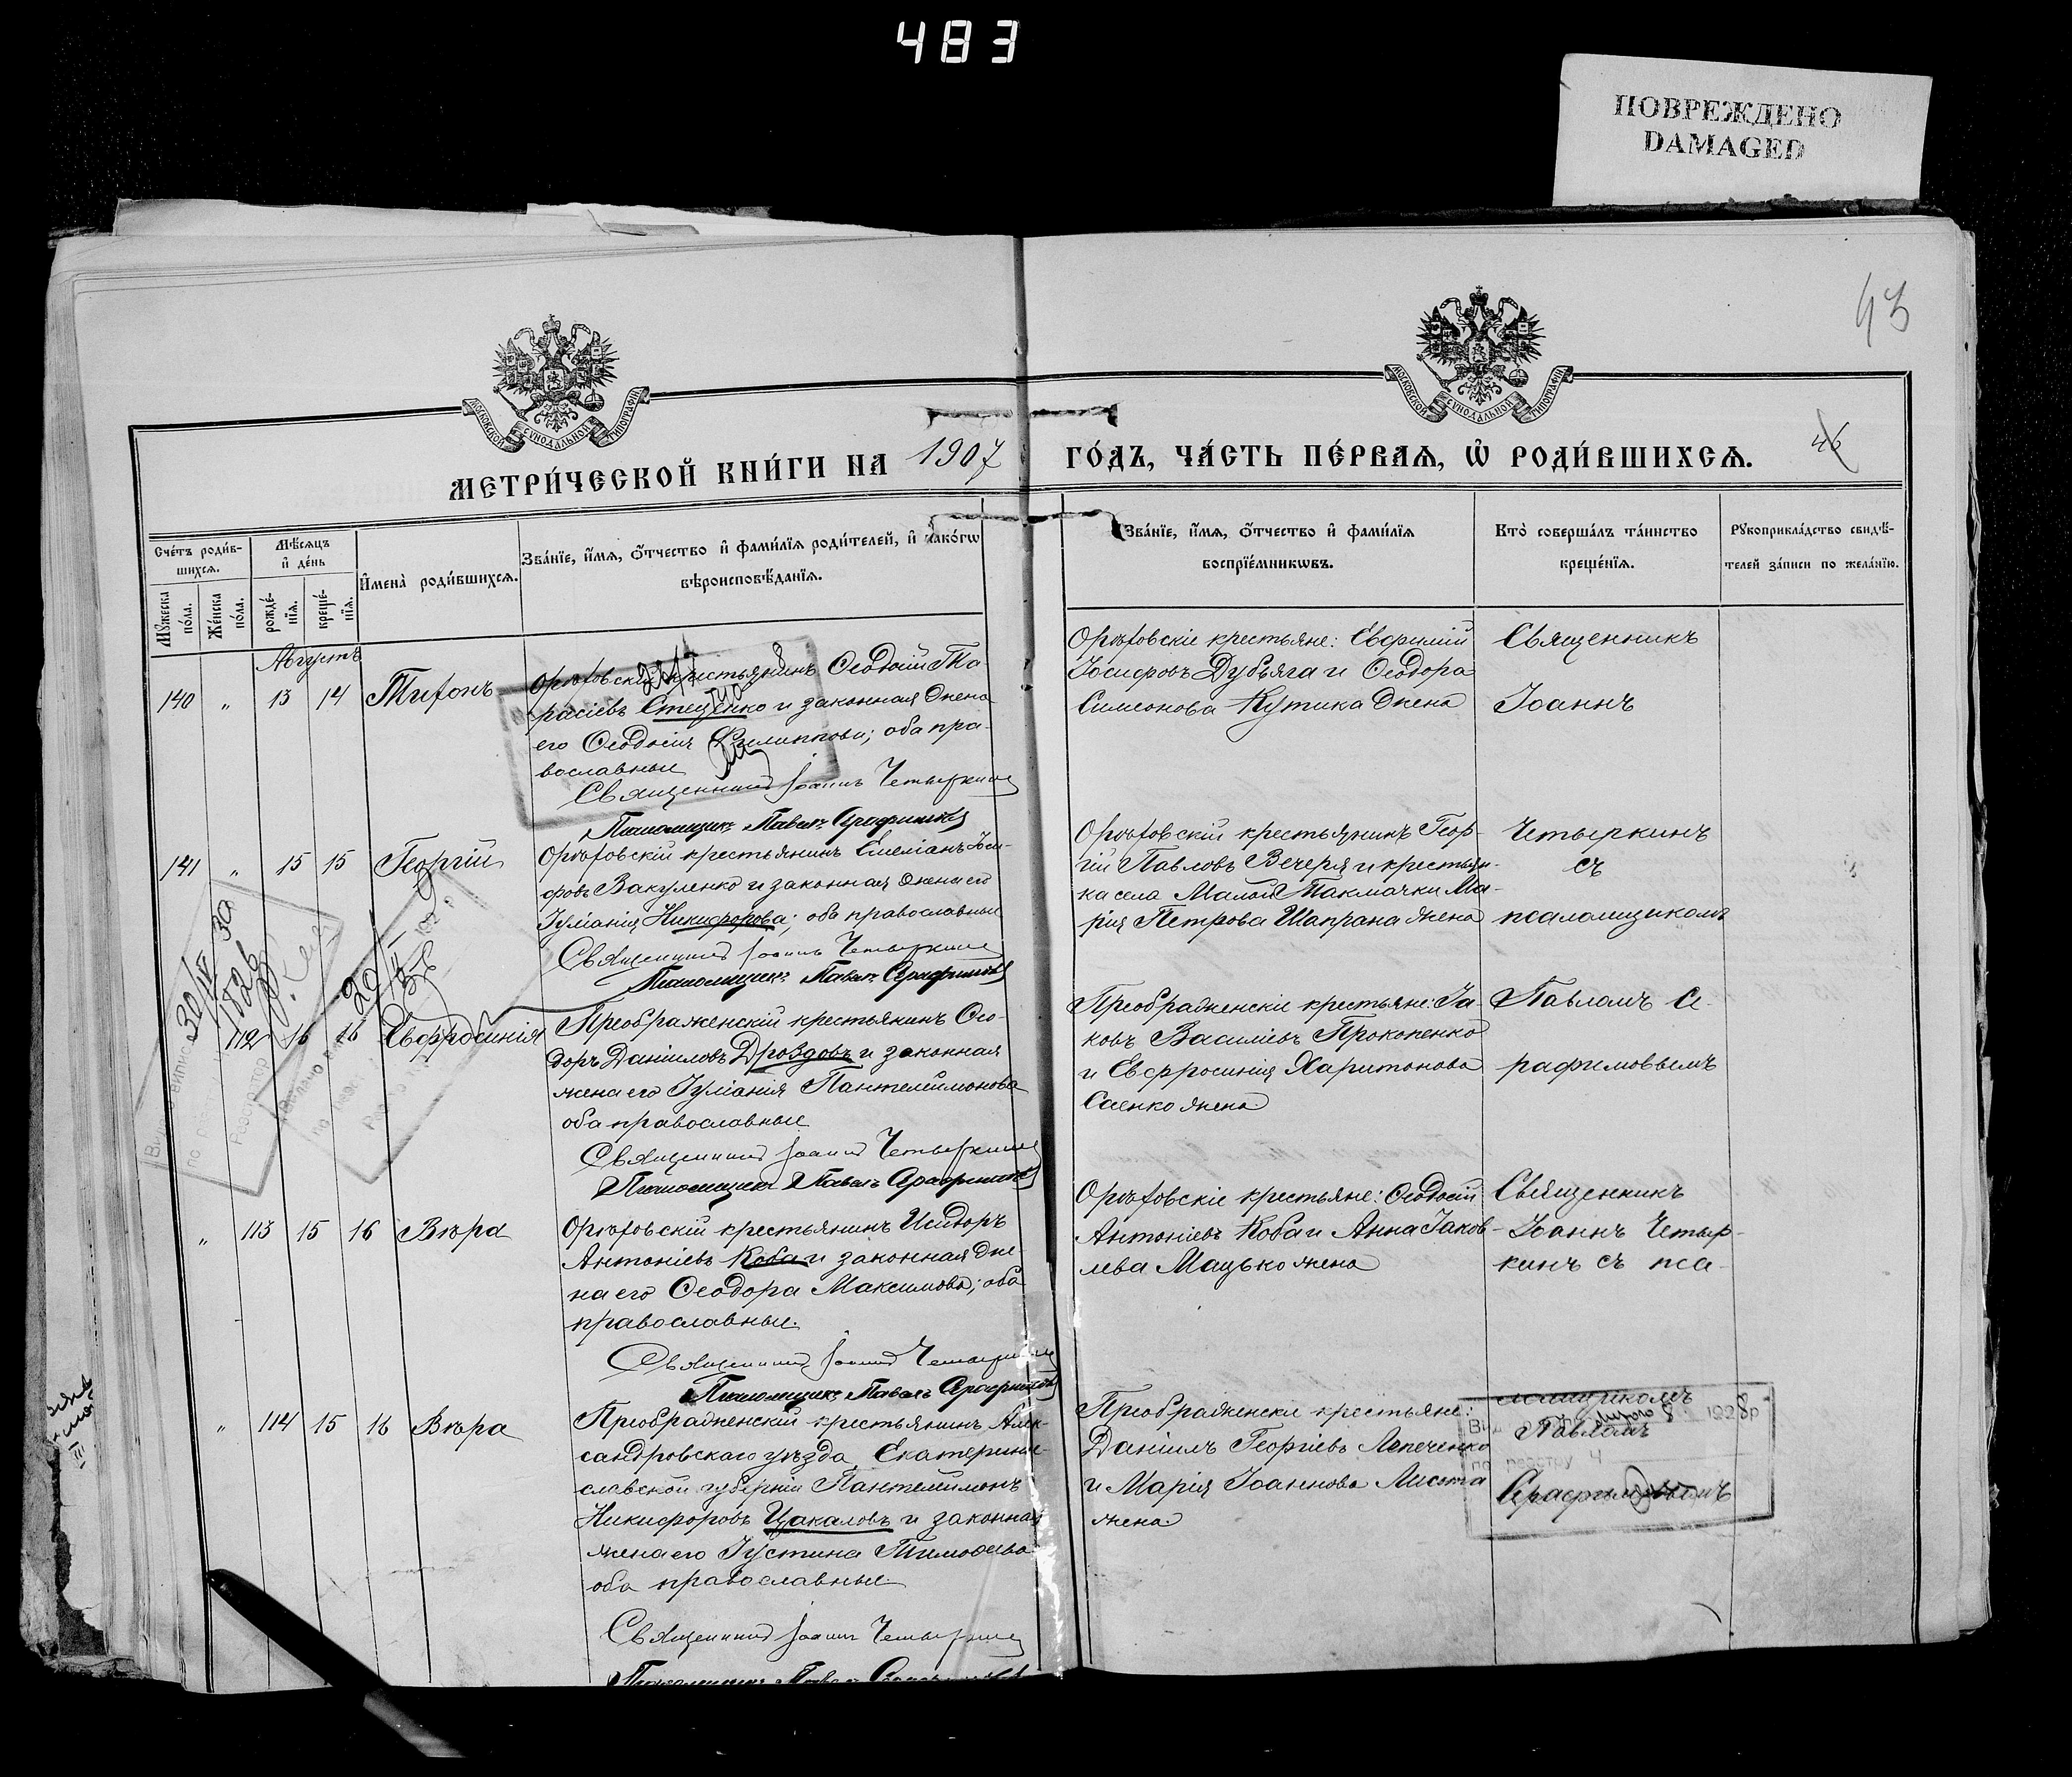 483
ПОВРЕЖДЕНО
DAMAGED
43
МОСКОВСКОЙ СУНОДАЛЬНОЙ ТИПОГРАФІИ
МОСКОВСКОЙ СУНОДАЛЬНОЙ ТИПОГРАФІИ
МЕТРИ́ЧЕСКОЙ КНИ́ГИ НА 1907 ГО́ДЪ, ЧА́СТЬ ПЕ́РВАѦ, Ѡ҆ РОДИ́ВШИХСѦ.
46
Сче́тъ роди́в-
шихсѧ.
Мꙋ́жеска по́ла.
Же́нска по́ла.
Мѣ́сѧцъ
и҆ де́нь
рожде́-
нїѧ.
креще́-
нїѧ.
И҆мена̀ роди́вшихсѧ.
Зва́нїе, и҆́мѧ, ѻ҆́тчество и҆ фамѝлїѧ роди́телей, и҆ како́гѡ
вѣроисповѣ́данїѧ.
Зва́нїе, и҆́мѧ, ѻ҆́тчество и҆ фамѝлїѧ
воспрїе́мникѡвъ.
Кто̀ соверша́лъ та́инство
креще́нїѧ.
Рꙋкоприкла́дство свидѣ́-
телей за́писи по жела́нїю.
Августъ
140 „ 13 14 Тихонъ
Орѣховскій крестьянинъ Ѳеодосій Та
расіевъ Стеценко и законная жена
его Ѳеодосія Филиппова; оба пра-
вославные
Священникъ Іоаннъ Четыркинъ
Псаломщикъ Павелъ Серафимовъ
Орѣховскіе крестьяне: Евфимій
Іосифовъ Дубьяга и Ѳеодора
Симеонова Кутика жена
Священникъ
Іоаннъ
141 „ 15 15 Георгій
Орѣховскій крестьянинъ Емеліанъ Іоси-
фовъ Вакуленко и законная жена его
Іуліанія Никифорова; оба православные
Священникъ Іоаннъ Четыркинъ
Псаломщикъ Павелъ Серафимовъ
Орѣховскій крестьянинъ Геор-
гій Павловъ Вечеря и крестьян-
ка села Малой Такмачки Ма-
рія Петрова Шапрана жена
Четыркинъ
съ
псаломщикомъ
30/IV 30
112 16 16 Евфросинія
Преображенскій крестьянинъ Ѳео-
доръ Даніиловъ Дроздовъ и законная
жена его Іуліанія Пантелеимонова
оба православные
Священникъ Іоаннъ Четыркинъ
Псаломщикъ Павелъ Серафимовъ
Преображенскіе крестьяне: Іа-
ковъ Василіевъ Прокопенко
и Евфросинія Харитонова
Саенко жена
Павломъ Се-
рафимовымъ
„ 113 15 16 Вѣра
Орѣховскій крестьянинъ Исидоръ
Антоніевъ Коба и законная же-
на его Ѳеодора Максимова; оба
православные.
Священникъ Іоаннъ Четыркинъ
Псаломщикъ Павелъ Серафимовъ
Орѣховскіе крестьяне: Ѳеодосій
Антоніевъ Коба и Анна Іаков-
лева Мацько жена
Священникъ
Іоаннъ Четыр-
кинъ съ пса-
„ 114 15 16 Вѣра
Преображенскій крестьянинъ Алек-
сандровскаго уѣзда Екатерино-
славской губерніи Пантелеимонъ
Никифоровъ Цакаловъ и законная
жена его Іустина Тимоѳеева
оба православные.
Священникъ Іоаннъ Четыркинъ
Псаломщикъ Павелъ Серафимовъ
Преображенскіе крестьяне:
Даніилъ Георгіевъ Лепеченко
и Марія Іоаннова Лисота
жена
ломщикомъ
Павломъ
Серафимовымъ